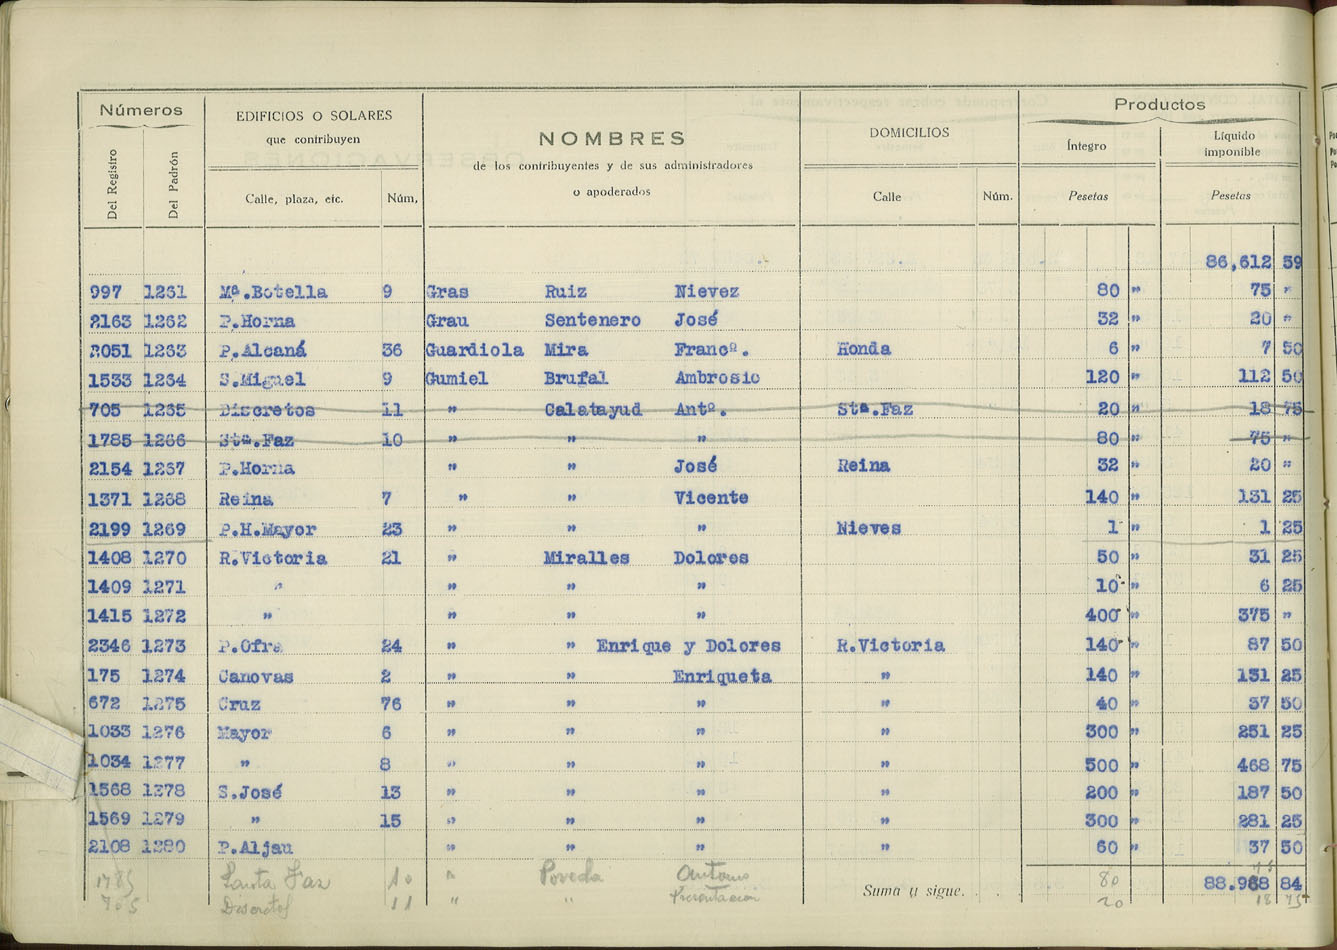 Números EDIFICIOS O SOLARES NOMBRES DOMICILIOS Productos
que contribuyen de los contribuyentes y de sus administradores Íntegro Líquido imponible
Del Registro Del Padrón Calle, plaza, etc. Núm, o apoderados Calle Núm. Pesetas Pesetas
86,612 59
997 1261 Mª.Botella 9 Gras Ruiz Nievez 80 " 75 "
2163 1262 P.Horna Grau Sentenero José 32 " 20 "
2051 1263 P.Alcaná 36 Guardiola Mira Francº. Honda 6 " 7 50
1533 1264 S.Miguel 9 Gumiel Brufal Ambrosio 120 " 112 50
705 1265 Discretos 11 " Calatayud Antº. Stª.Faz 20 " 18 75
1785 1266 Stª.Faz 10 " " " 80 " 75 "
2154 1267 P.Horna " " José Reina 32 " 20 "
1371 1268 Reina 7 " " Vicente 140 " 131 25
2199 1269 P.H.Mayor 23 " " " Nieves 1 " 1 25
1408 1270 R.Victoria 21 " Miralles Dolores 50 " 31 25
1409 1271 " " " " 10 " 6 25
1415 1272 " " " " 400 " 375 "
2346 1273 P.Ofra 24 " " Enrique y Dolores R.Victoria 140 " 87 50
175 1274 Canovas 2 " " Enriqueta " 140 " 131 25
672 1275 Cruz 76 " " " " 40 " 37 50
1033 1276 Mayor 6 " " " " 300 " 251 25
1034 1277 " 8 " " " " 500 " 468 75
1568 1278 S.José 13 " " " " 200 " 187 50
1569 1279 " 15 " " " " 300 " 281 25
2108 1280 P.Aljau " " " " 60 " 37 50
1785 Santa Faz 10 " Poveda Antonio 80
Suma y sigue. 88.968 84
705 Discretos 11 " " Presentacion 20 18 75